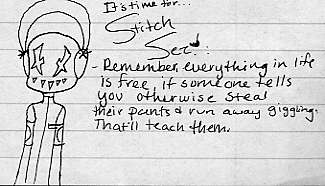 It's time for...
Stitch
Sez:
- Remember everything in life
is free, if someone tells
you otherwise steal
their pants & run away giggling.
That'll teach them.